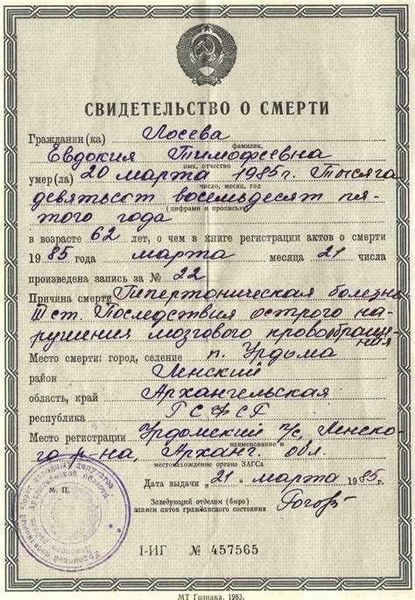 СВИДЕТЕЛЬСТВО О СМЕРТИ
Гражданин(ка) Лосева
фамилия,
Евдокия Тимофеевна
имя, отчество
умер(ла 20 марта 1985 г. Тысяча
число, месяц, год
девятьсот восемьдесят пя-
(цифрами и прописью)
того года
в возрасте 62 лет, о чем в книге регистрации актов о смерти
1985 года марта месяца 21 числа
произведена запись за № 22
Причина смерти Гипертоническая болезнь
III ст. Последствия острого на-
рушения мозгового кровообращения
Место смерти: город, селение п. Урдома
район Ленский
область, край Архангельская
республика РСФСР
Место регистрации Урдомский п/с, Ленско-
наименование и
го р-на, Арханг. обл.
местонахождение органа ЗАГСа
Дата выдачи „21" марта 1985 г.
М. П.
Заведующий отделом (бюро)
записи актов гражданского состояния
I-ИГ № 457565
МТ Гознака. 1983.